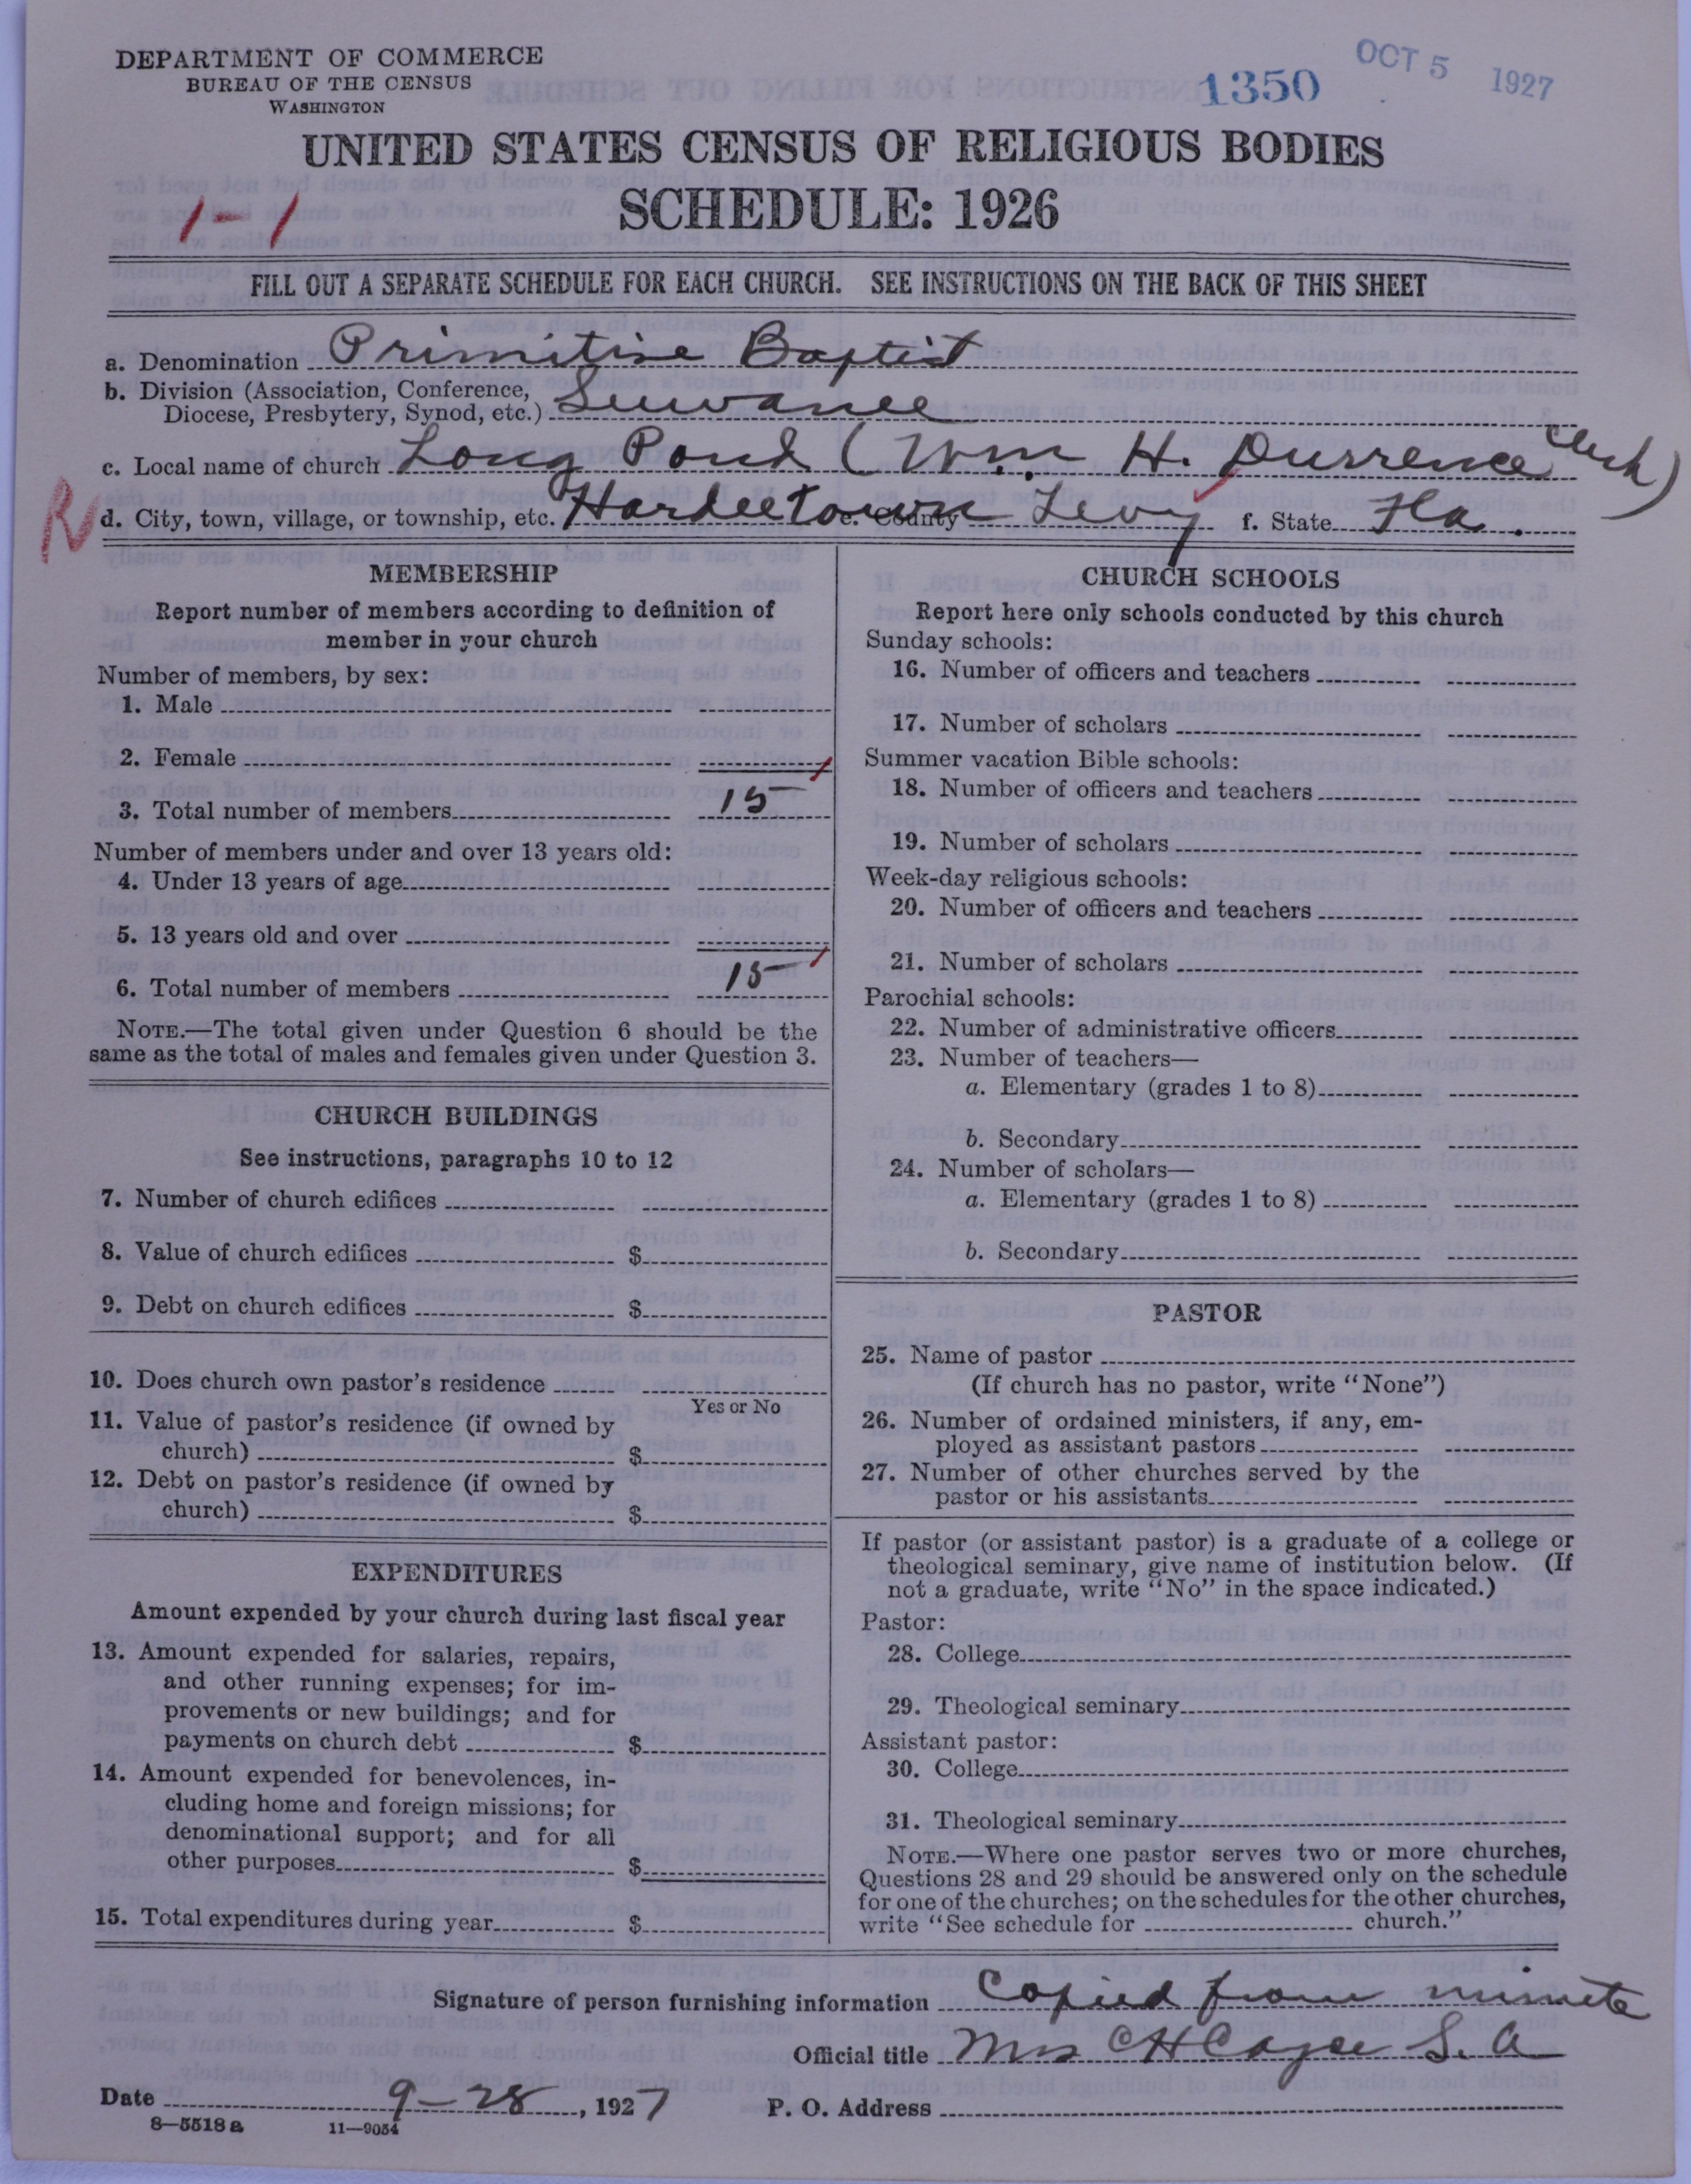 DEPARTMENT OF COMMERCE
BUREAU OF THE CENSUS
WASHINGTON
1350
OCT 5 1927
UNITED STATES CENSUS OF RELIGIOUS BODIES
1-1
SCHEDULE: 1926
FILL OUT A SEPARATE SCHEDULE FOR EACH CHURCH. SEE INSTRUCTIONS ON THE BACK OF THIS SHEET
a. Denomination Primitive Baptist
b. Division (Association, Conference,
Diocese, Presbytery, Synod, etc.) Suwanee
c. Local name of church Long Pond (Wm. H. Durrence Clerk)
R
d. City, town, village, or township, etc. Hardeetown e. County Levy f. State Fla.
MEMBERSHIP
Report number of members according to definition of
member in your church
Number of members, by sex:
1. Male
2. Female
3. Total number of members 15
Number of members under and over 13 years old:
4. Under 13 years of age
5. 13 years old and over
6. Total number of members 15
NOTE.—The total given under Question 6 should be the
same as the total of males and females given under Question 3.
CHURCH BUILDINGS
See instructions, paragraphs 10 to 12
7. Number of church edifices
8. Value of church edifices $
9. Debt on church edifices $
10. Does church own pastor's residence
Yes or No
11. Value of pastor's residence (if owned by
church) $
12. Debt on pastor's residence (if owned by
church) $
EXPENDITURES
Amount expended by your church during last fiscal year
13. Amount expended for salaries, repairs,
and other running expenses; for im-
provements or new buildings; and for
payments on church debt $
14. Amount expended for benevolences, in-
cluding home and foreign missions; for
denominational support; and for all
other purposes $
15. Total expenditures during year $
CHURCH SCHOOLS
Report here only schools conducted by this church
Sunday schools:
16. Number of officers and teachers
17. Number of scholars
Summer vacation Bible schools:
18. Number of officers and teachers
19. Number of scholars
Week-day religious schools:
20. Number of officers and teachers
21. Number of scholars
Parochial schools:
22. Number of administrative officers
23. Number of teachers—
a. Elementary (grades 1 to 8)
b. Secondary
24. Number of scholars—
a. Elementary (grades 1 to 8)
b. Secondary
PASTOR
25. Name of pastor
(If church has no pastor, write "None")
26. Number of ordained ministers, if any, em-
ployed as assistant pastors
27. Number of other churches served by the
pastor or his assistants
If pastor (or assistant pastor) is a graduate of a college or
theological seminary, give name of institution below. (If
not a graduate, write "No" in the space indicated.)
Pastor:
28. College
29. Theological seminary
Assistant pastor:
30. College
31. Theological seminary
NOTE.—Where one pastor serves two or more churches,
Questions 28 and 29 should be answered only on the schedule
for one of the churches; on the schedules for the other churches,
write "See schedule for church."
Signature of person furnishing information Copied from minute
Official title Mrs C H Cayce S. A
Date 9-28, 1927 P. O. Address
8—5518a 11—9054